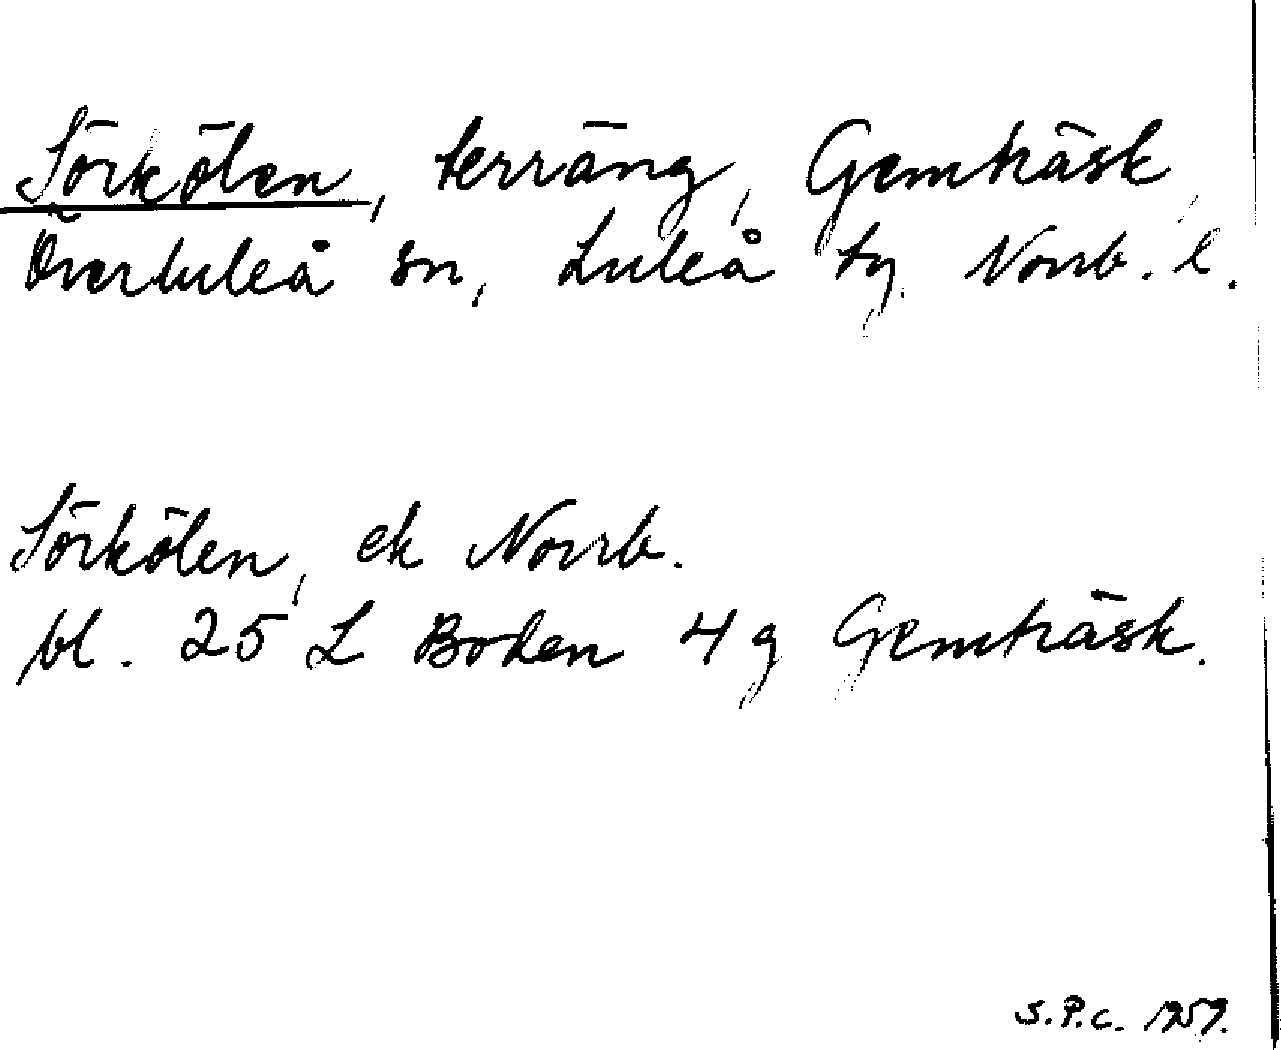 Sörkölen, terräng, Gemträsk,
Överluleå sn, Luleå tg. Norrb. l.
Sörkölen, ek Norrb.
bl. 25 L Boden 4 g Gemträsk.
S.P.C. 1959.